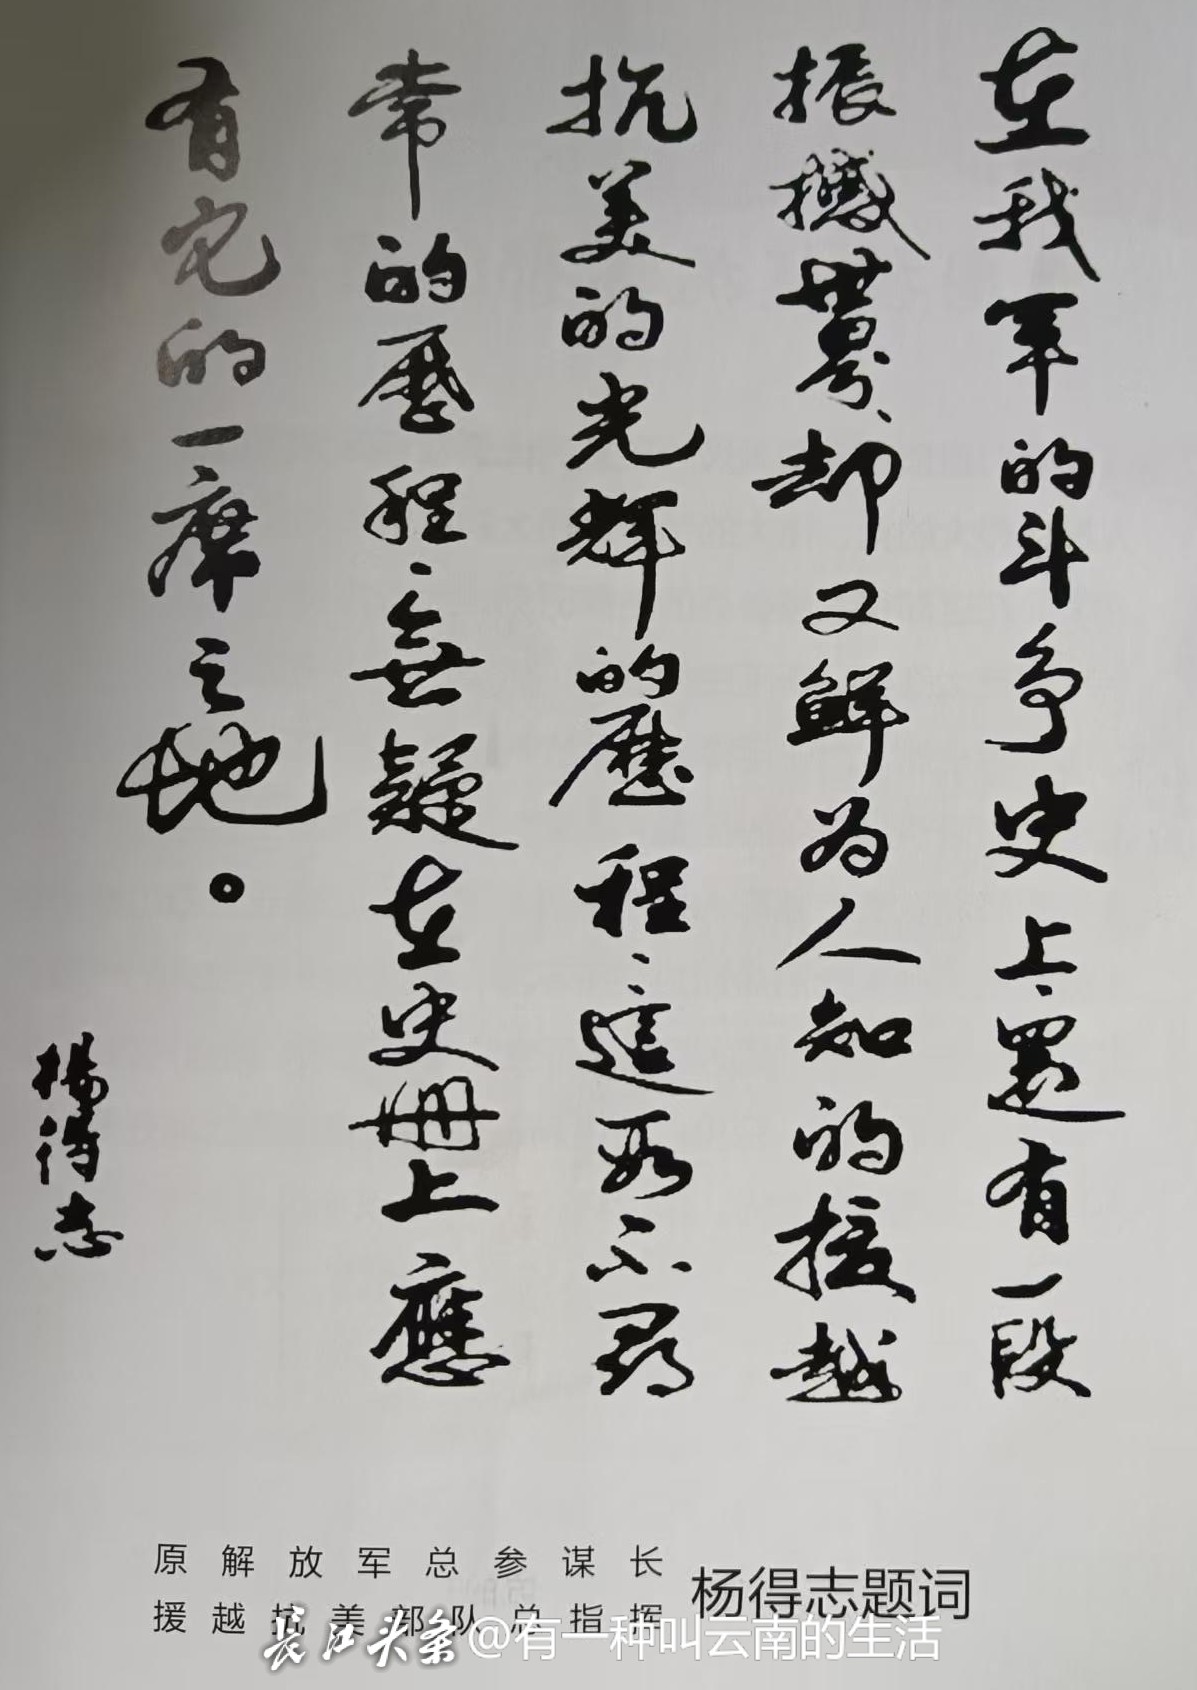 在我军的斗争史上、還有一段
振撼世界、却又鲜为人知的援越
抗美的光辉的歷程、這段不尋
常的歷程、無疑在史册上應
有它的一席之地。
楊得志
原解放军总参谋长
援越抗美部队总指挥
杨得志题词
长江头条@有一种叫云南的生活